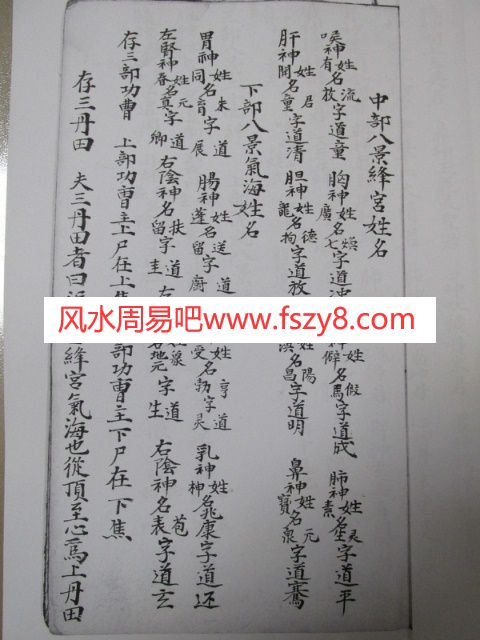 中部八景絳宮姓名
喉神姓流有名放字道童 胸神姓熯廣名七字道冲 姓假僻名馬字道成 肺神姓灵素名字道平
肝神姓君開名童字道清 胆神姓德龍名拘字道放 姓陽名昌字道明 鼻神姓元寳名泉字道騫
下部八景氣海姓名
胃神姓来同名育字道展 腸神姓送蓬名留字道廚 姓亨受名勃字道灵 乳神姓名兆康字道还
左腎神姓元春名真字道卿 右陰神名扶留字道圭 左 地元字道生 右陰神名苞表字道玄
存三部功曹 上部功曹主上尸在上焦 部功曹主下尸在下焦
存三丹田 夫三丹田者曰 絳宮氣海也從頂至心爲上丹田
风水周易吧www.fszy8.com